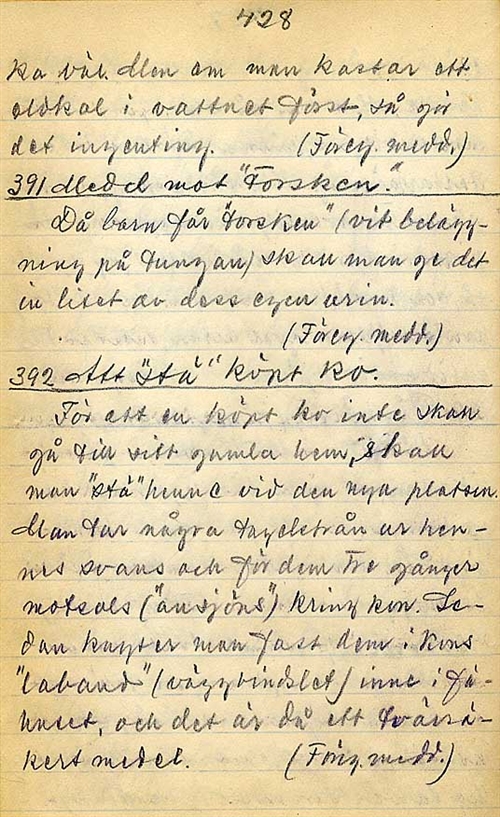 428
ka väl. Men om man kastar ett
eldkol i vattnet först, så gör
det ingenting. (Föreg. medd.)
391 Medel mot "Torsken."
Då barn får "torsken" (vit belägg-
ning på tungan) skall man ge det
in litet av dess egen urin.
(Föreg. medd.)
392 Att "stå" köpt ko.
För att en köpt ko inte skall
gå till sitt gamla hem, skall
man "stå" henne vid den nya platsen.
Man tar några tagelstrån ur hen-
nes svans och för dem tre gånger
motsols ("ansjöns") kring kon. Se-
dan knyter man fast dem i kons
"laband" (väggbindslet) inne i fä-
huset, och det är då ett tvärsä-
kert medel. (Föreg. medd.)